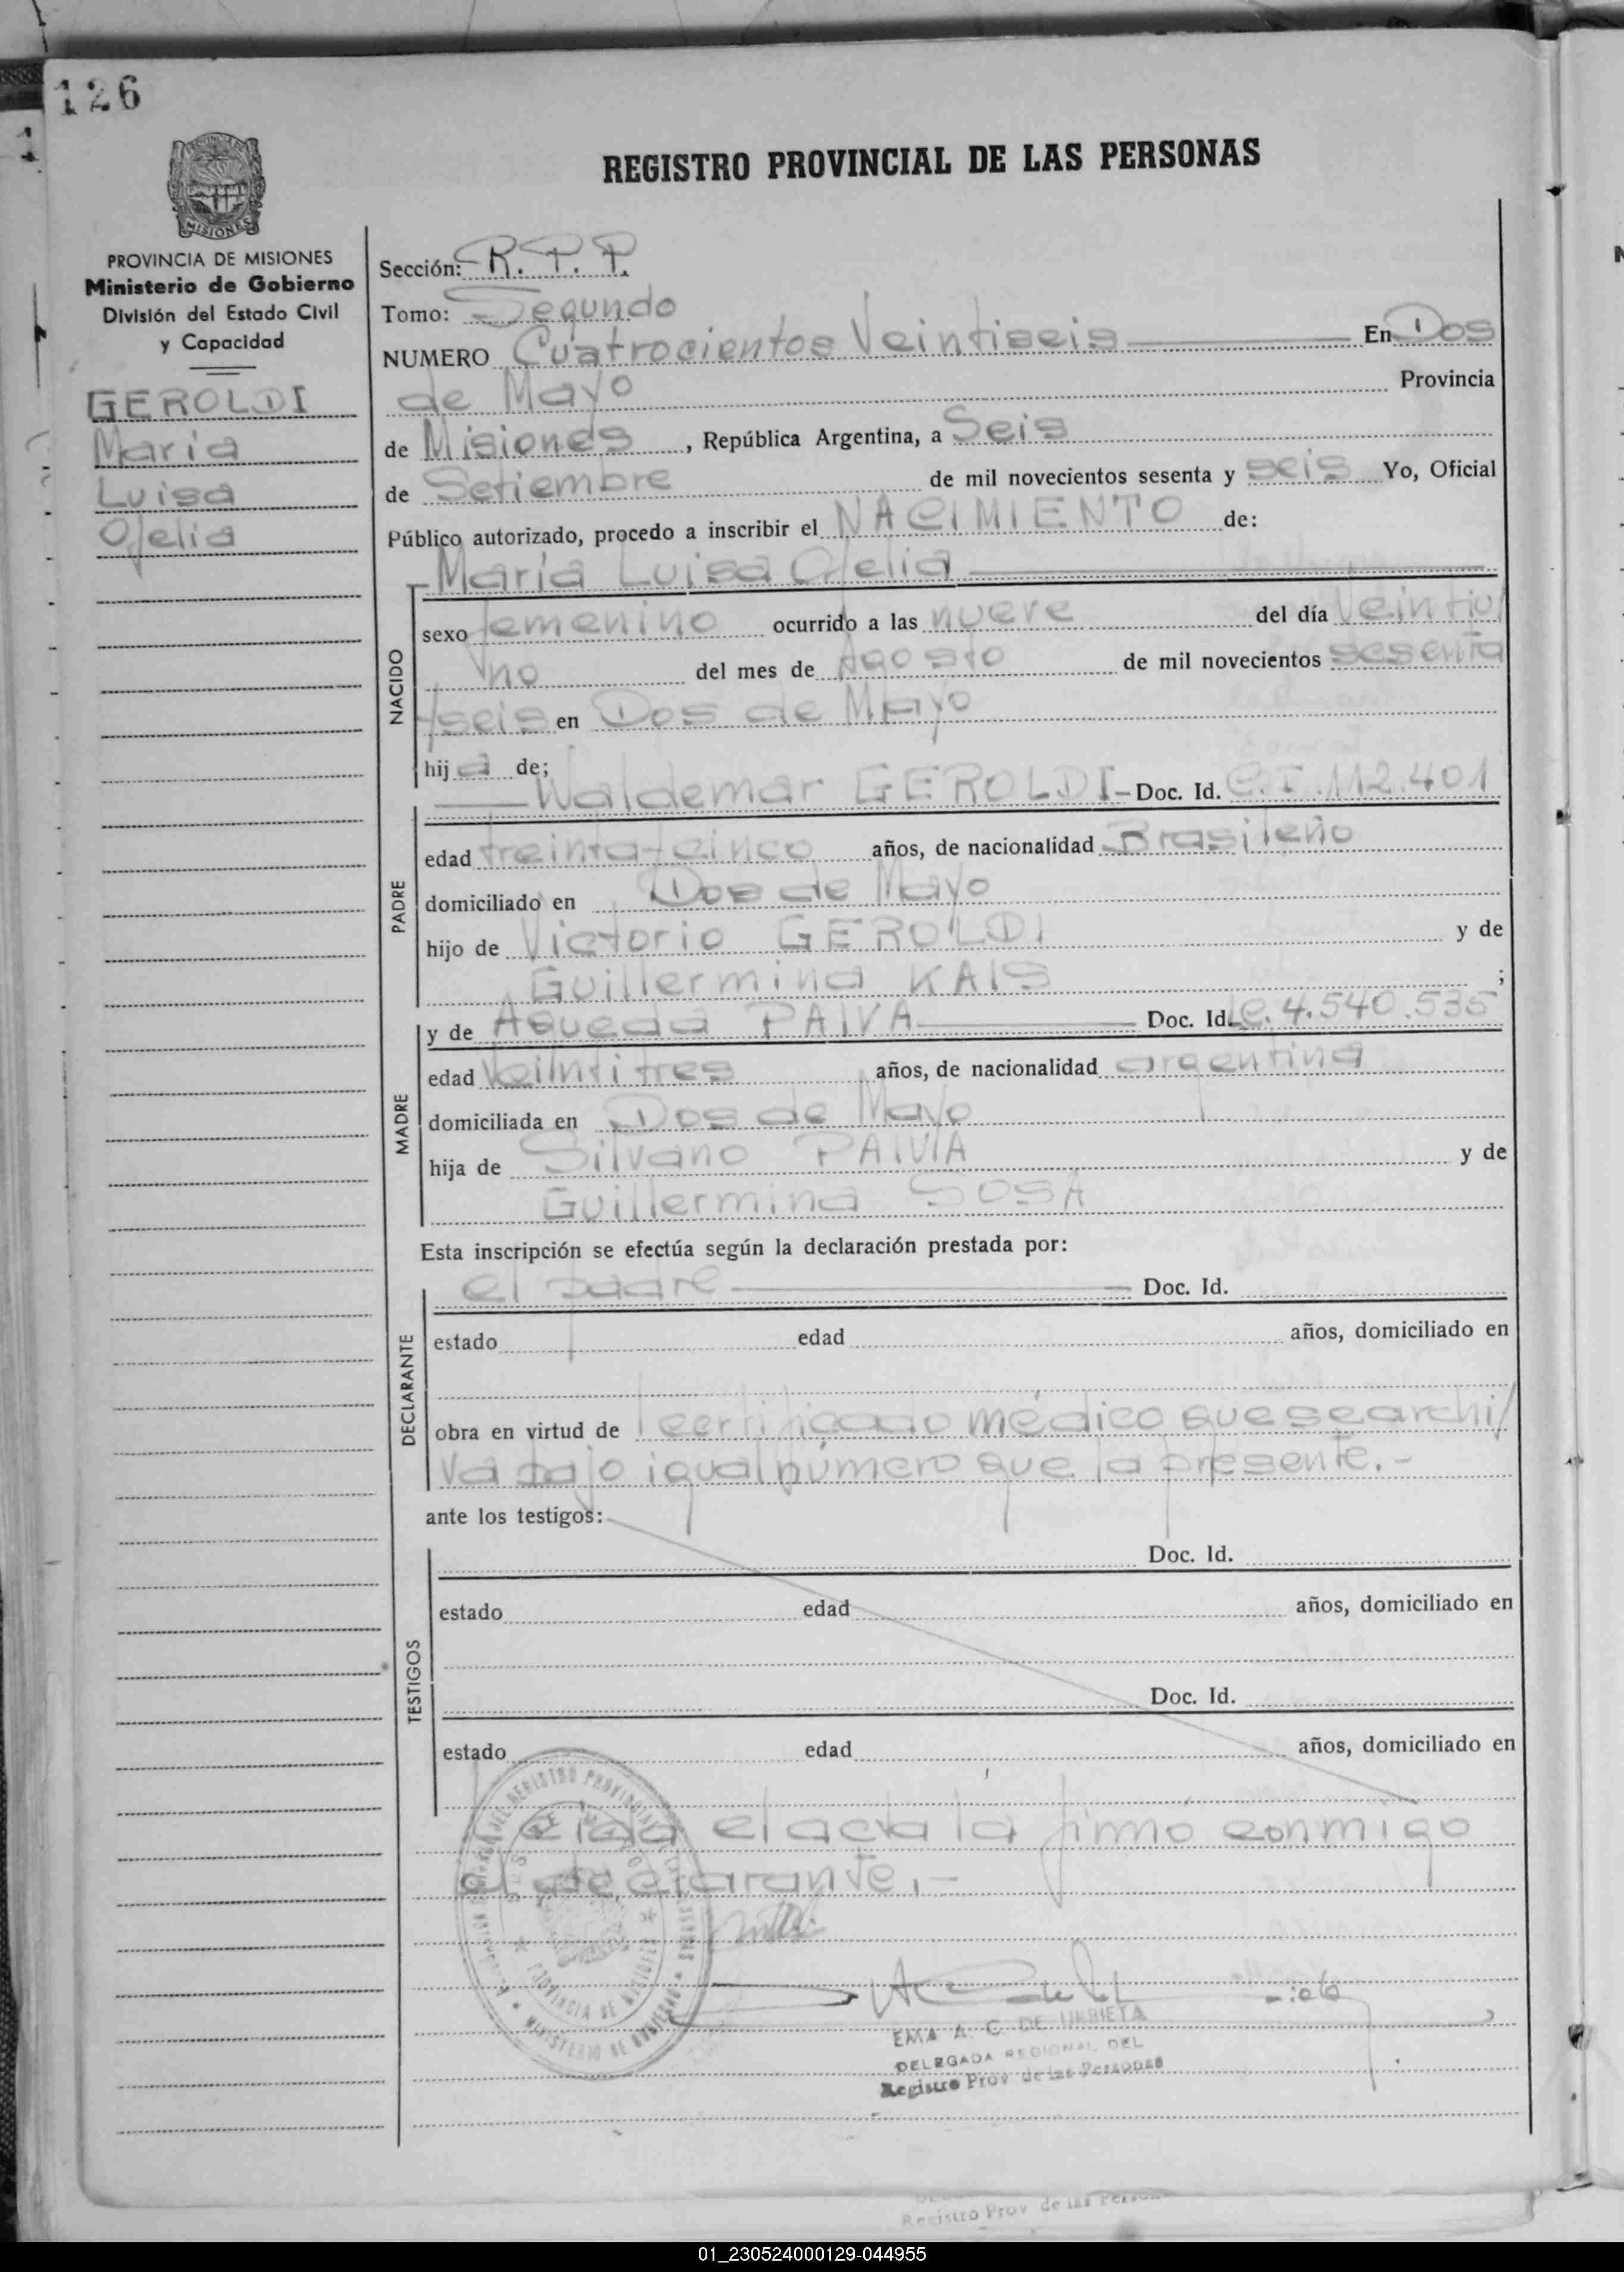 126
REGISTRO PROVINCIAL DE LAS PERSONAS
MISIONES
PROVINCIA DE MISIONES
Ministerio de Gobierno
División del Estado Civil
y Capacidad
GEROLDI
María
Luisa
Ofelia
Sección: R.P.P.
Tomo: Segundo
NUMERO Cuatrocientos Veintiseis En Dos
de Mayo Provincia
de Misiones, República Argentina, a Seis
de Setiembre de mil novecientos sesenta y seis Yo, Oficial
Público autorizado, procedo a inscribir el NACIMIENTO de:
María Luisa Ofelia
NACIDO
sexo femenino ocurrido a las nueve del día Veintiu/
no del mes de Agosto de mil novecientos sesenta
yseis en Dos de Mayo
hija de;
Waldemar GEROLDI- Doc. Id. C.I.112.401
PADRE
edad treintaycinco años, de nacionalidad Brasileño
domiciliado en Dos de Mayo
hijo de Victorio GEROLDI y de
Guillermina KAIS ;
y de Agueda PAIVA Doc. Id. L.C. 4.540.535
MADRE
edad Veiinti tres años, de nacionalidad argentina
domiciliada en Dos de Mayo
hija de Silvano PAIVA y de
Guillermina SOSA
Esta inscripción se efectúa según la declaración prestada por:
el padre Doc. Id.
DECLARANTE
estado edad años, domiciliado en
obra en virtud de certificado médico que se archi/
va bajo igual número que la presente.-
ante los testigos:
Doc. Id.
TESTIGOS
estado edad años, domiciliado en
Doc. Id.
estado edad años, domiciliado en
Leida el acta la firmó conmigo
el declarante.-
EMA A. C. DE URRIETA
DELEGADA REGIONAL DEL
Registro Prov de las Personas
PROVINCIA DE MISIONES
MINISTERIO DE GOBIERNO
Registro Prov de las
01_230524000129-044955